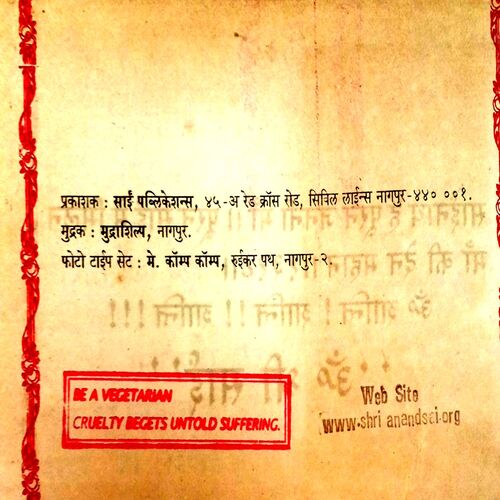 प्रकाशक : साईं पब्लिकेशन्स, ४५-अ रेड क्रॉस रोड, सिविल लाईन्स नागपुर-४४० ००१.
मुद्रक : मुद्राशिल्प, नागपुर.
फोटो टाईप सेट : मे. कॉम्प कॉम्प, रुईकर पथ, नागपुर-२.
BE A VEGETARIAN
CRUELTY BEGETS UNTOLD SUFFERING.
Web Site
www.shri anandsai.org